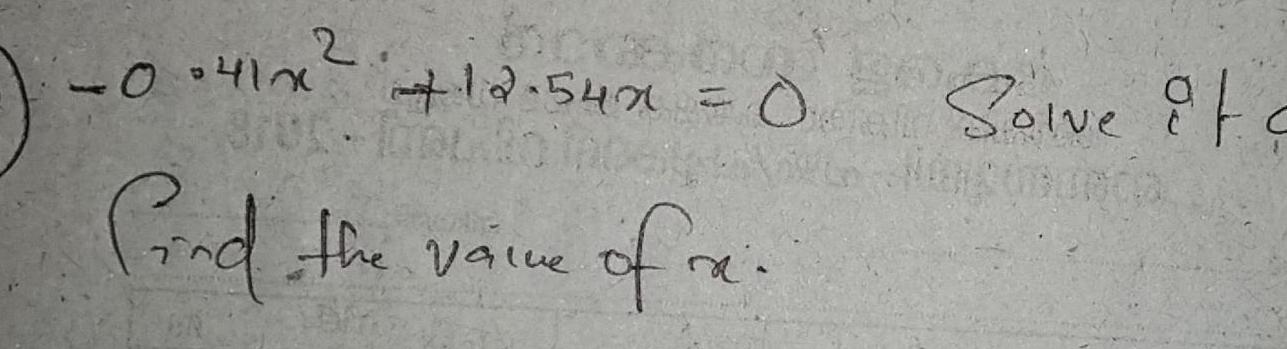 ) -0.41x² +12.54x = 0 Solve it &
find the value of x.